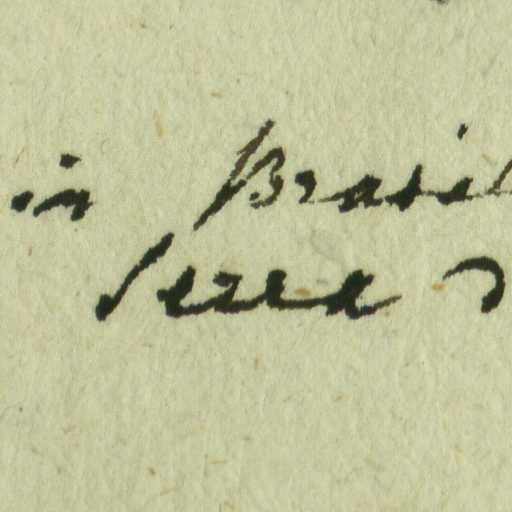 in Brasil
Serra